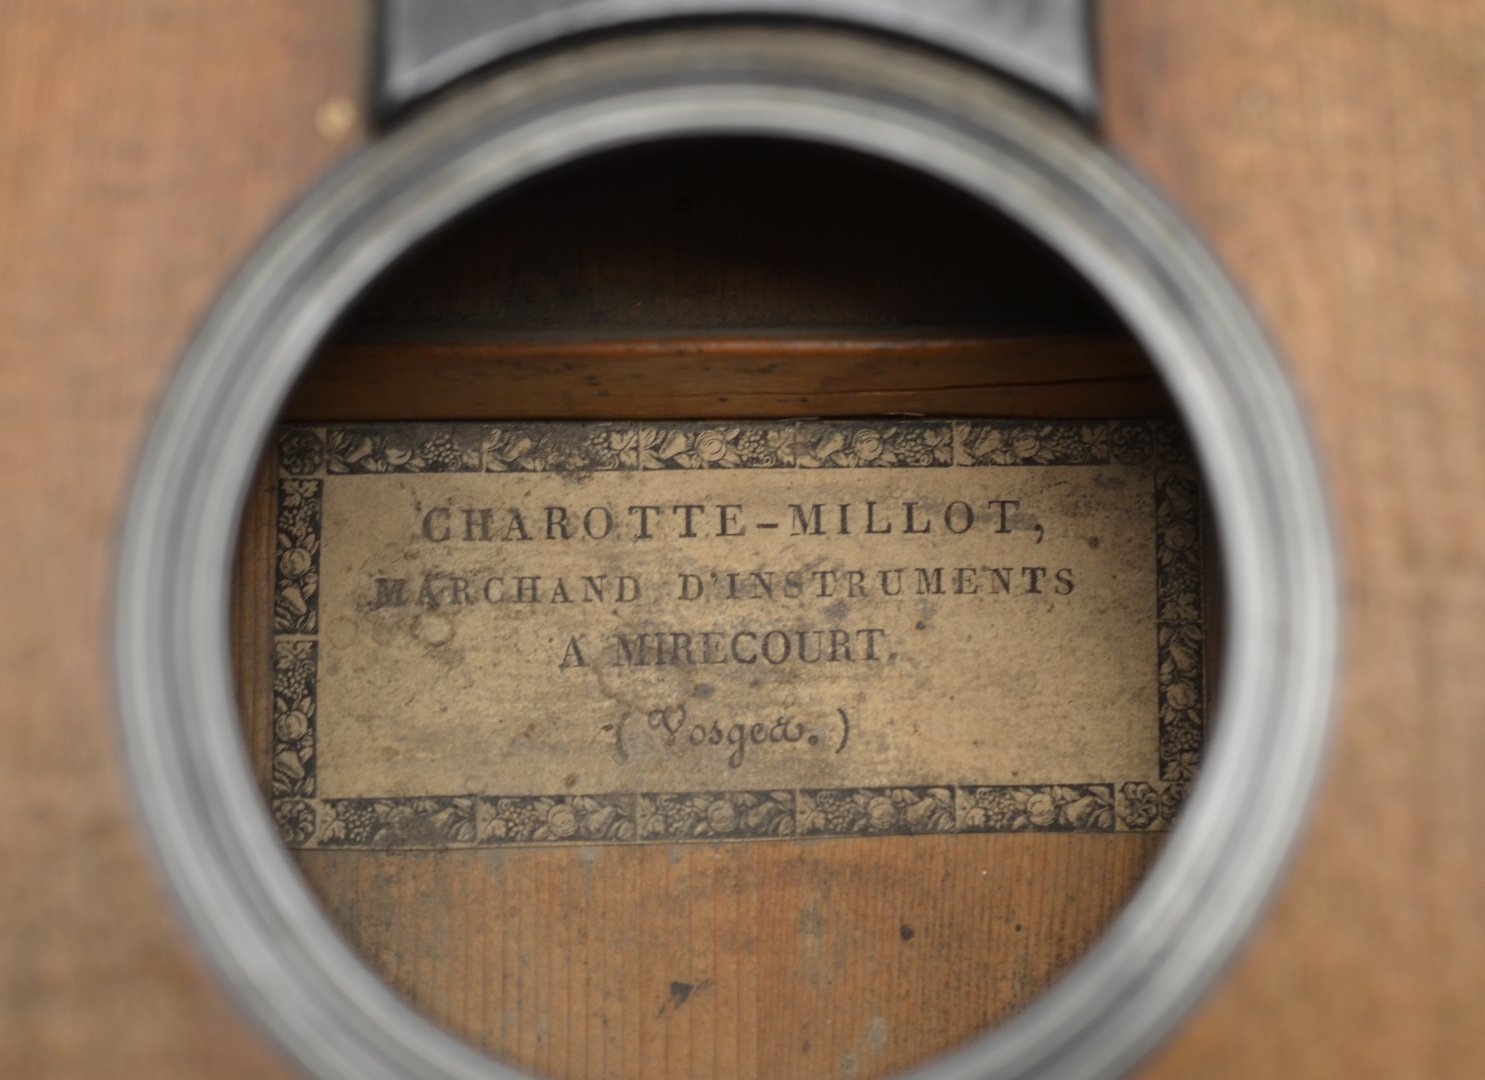 CHAROTTE-MILLOT,
MARCHAND D'INSTRUMENTS
A MIRECOURT.
(Vosges.)